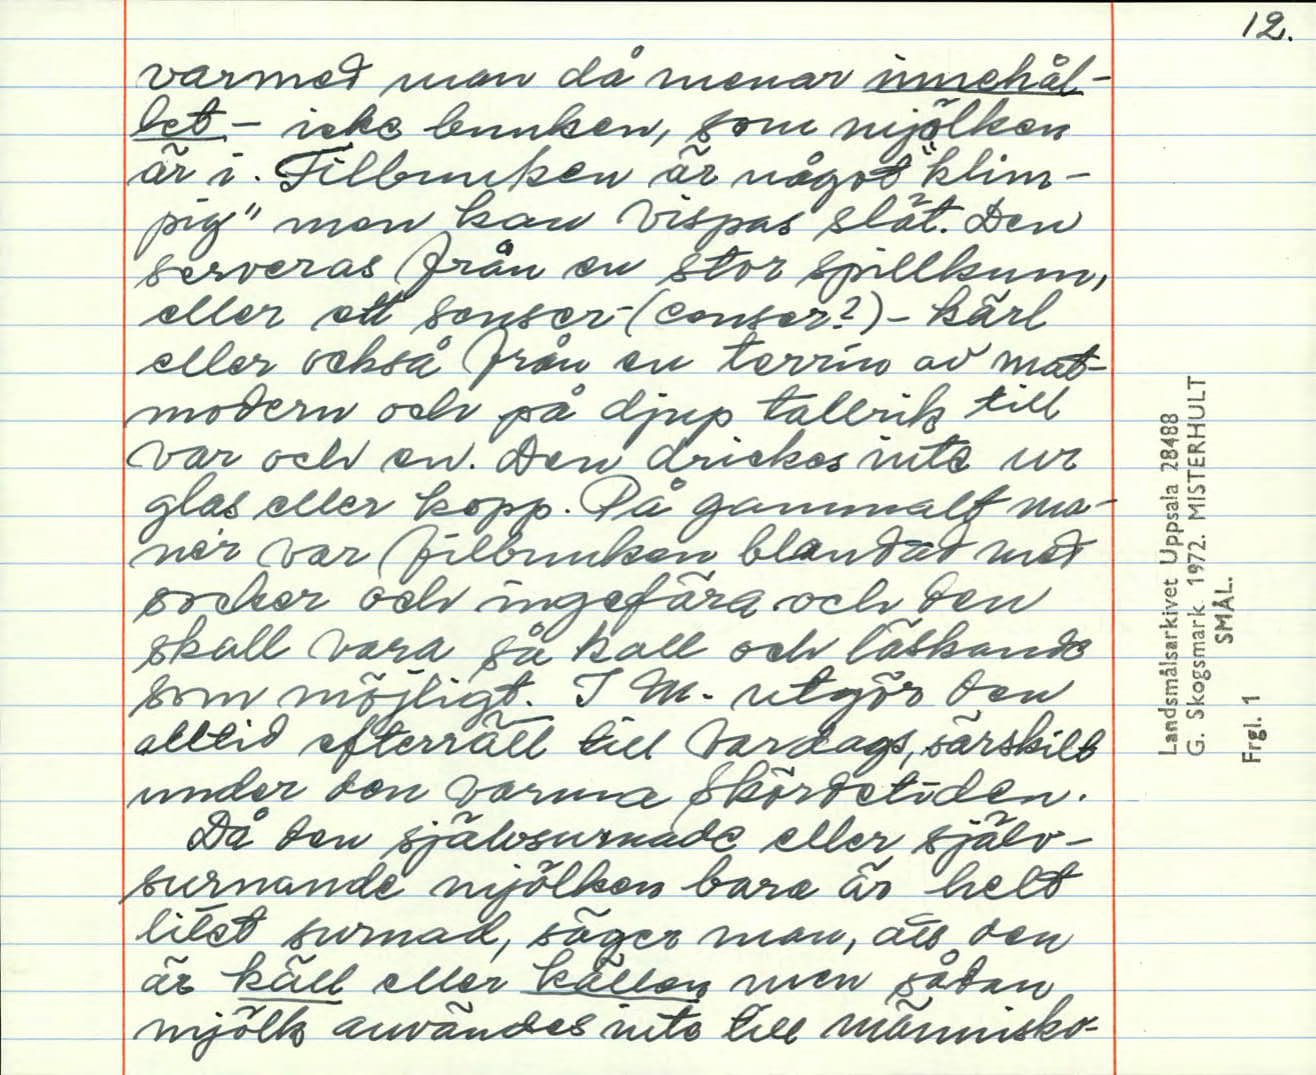 12.
varmed man då menar innehål-
let - icke bunken, som mjölken
är i. Filbunken är något "klim-
pig" men kan vispas slät. Den
serveras från en stor spillkum,
eller ett senser-(censer?)-kärl
eller också från en terrin av mat-
modern och på djup tallrik till
var och en. Den drickes inte ur
glas eller kopp. På gammalt ma-
nér var filbunken blandad med
socker och ingefära och den
skall vara så kall och läskande
som möjligt. I M. utgör den
alltid efterrätt till vardags, särskilt
under den varma skördetiden.
Då den självsurnade eller själv-
surnande mjölken bara är helt
litet surnad, säger man, att den
är käll eller källen men sådan
mjölk användes inte till människo-
Landsmålsarkivet Uppsala 28488
G. Skogsmark. 1972. MISTERHULT
SMÅL.
Frgl. 1